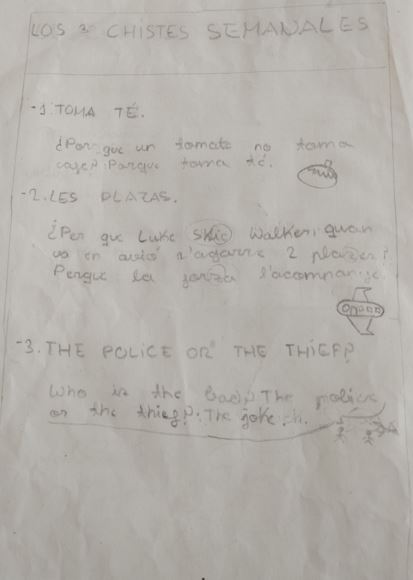 LOS 3 CHISTES SEMANALES
-1. TOMA TÉ.
¿Porque un tomate no toma
cafe? Porque toma té.
-2. LES PLAZAS.
¿Per que Luke Skie Walker, quan
va en avió n'agarra 2 plazes?
Perque la forza l'acompan
-3. THE POLICE OR THE THIEF?
Who is the bad? The police
or the thief? The joke